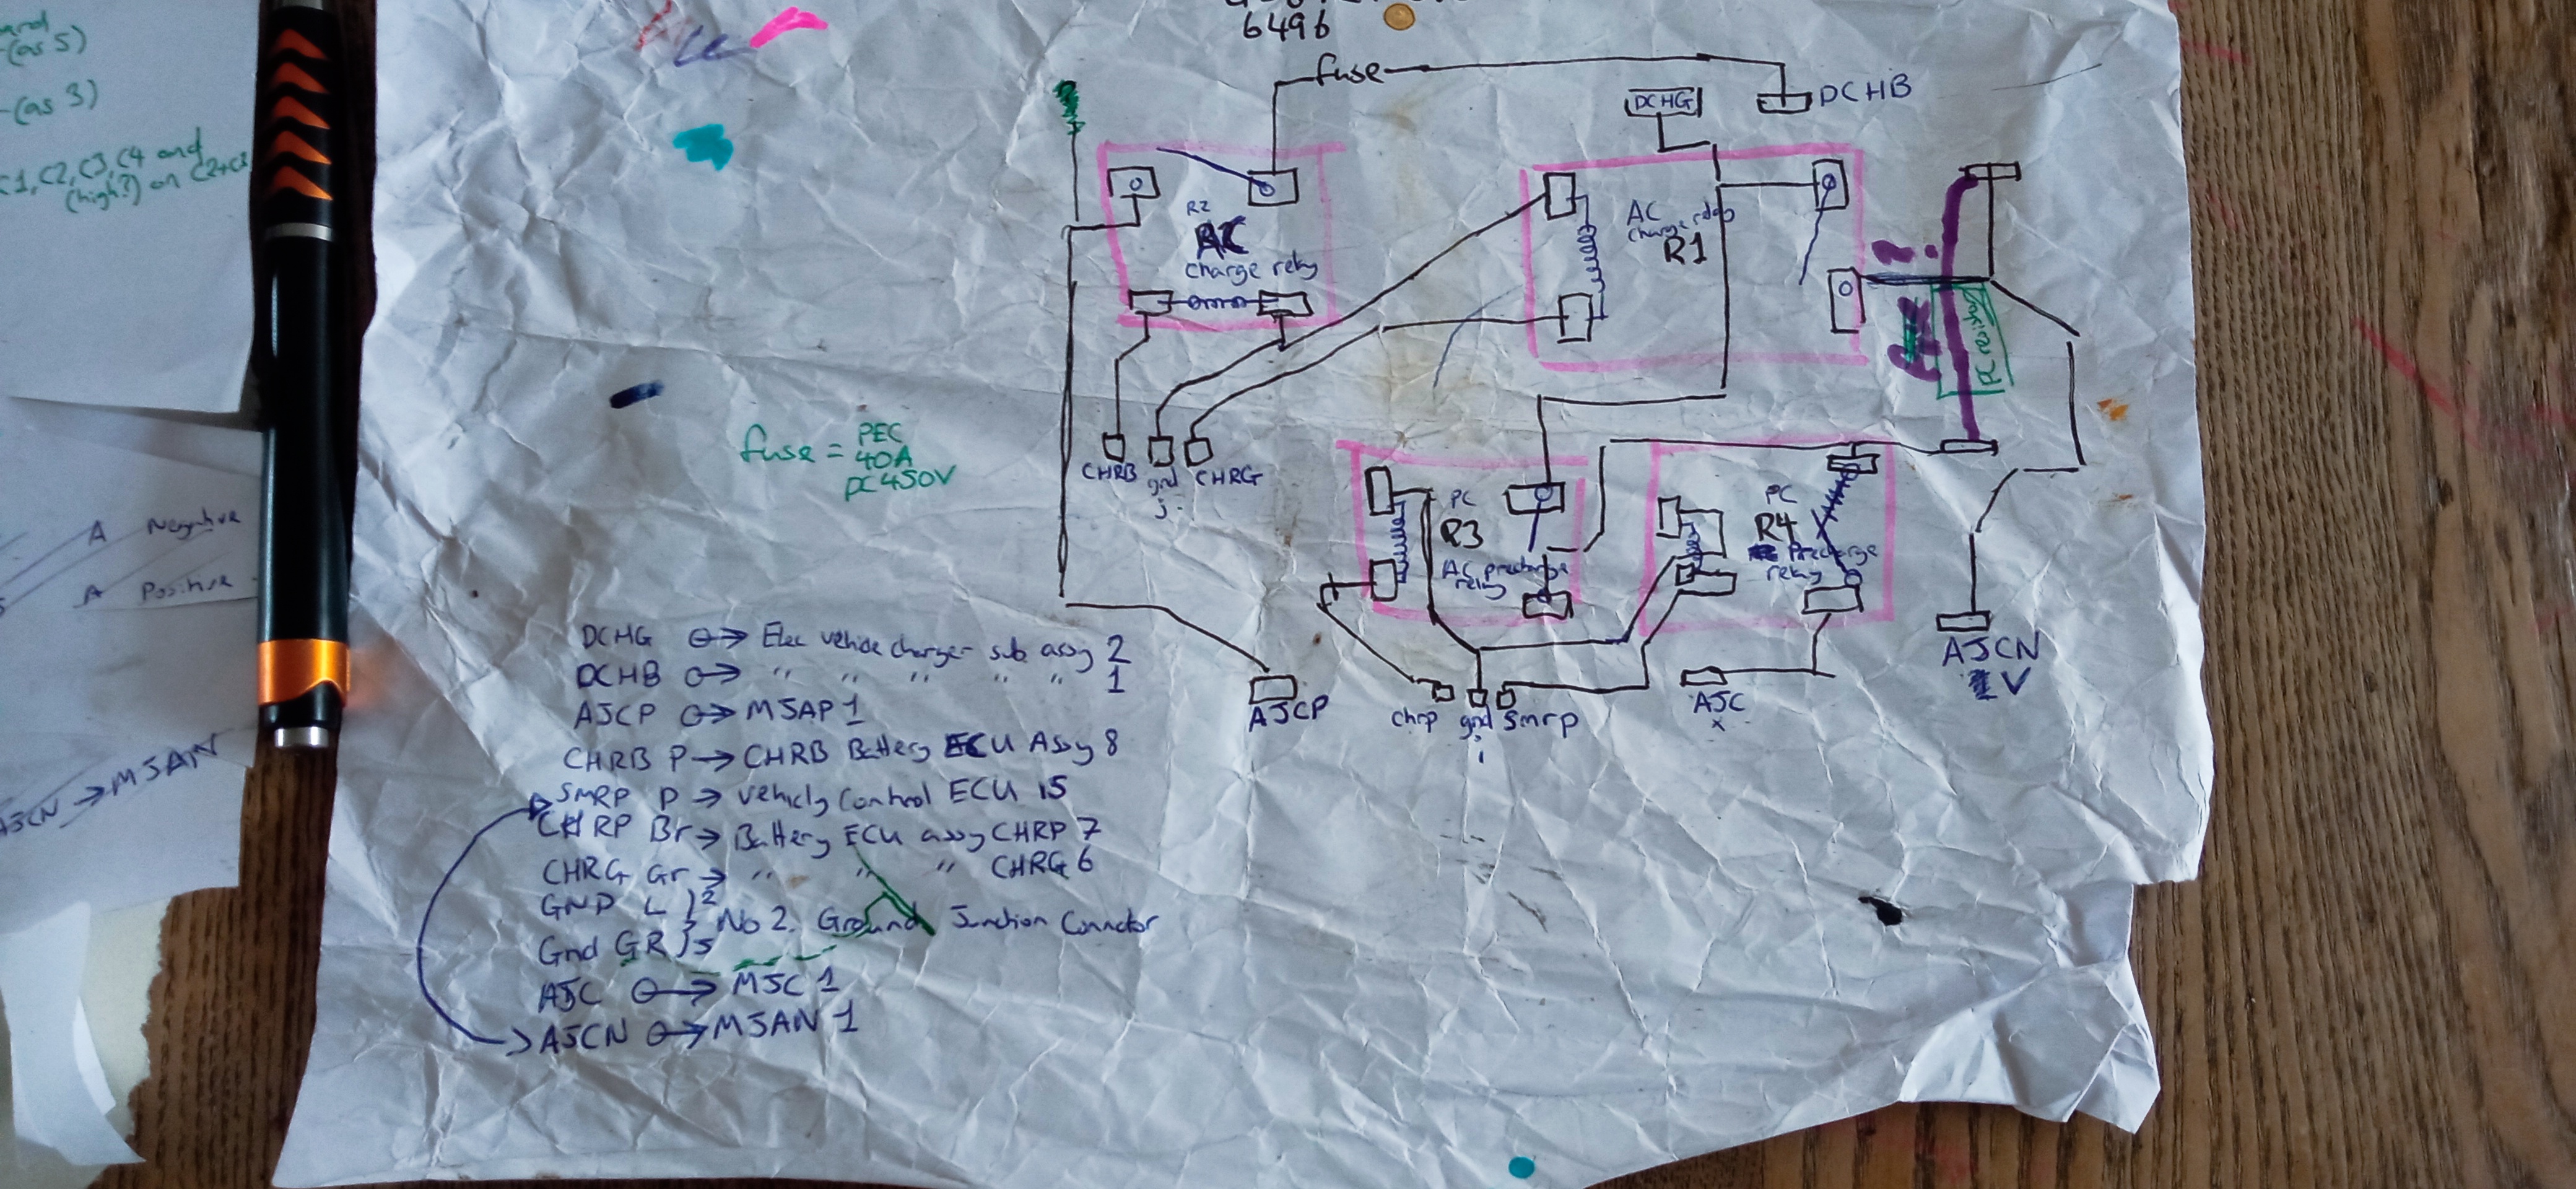 6496
fuse
DCHG
DCHB
R2
AC
charge relay
AC
charge relay
R1
?
PC resistor
fuse = PEC
40A
DC450V
CHRB
gnd
j
CHRG
PC
R3
AC precharge
relay
PC
R4
Precharge
relay
AJCP
chrp
gnd
i
smrp
AJC
x
AJCN
V
DCHG → Elec vehicle charger sub assy 2
DCHB → " " " " " 1
AJCP → MJAP 1
CHRB P → CHRB Battery ECU Assy 8
SMRP P → Vehicly Control ECU 15
CHRP Br → Battery ECU assy CHRP 7
CHRG Gr → " " " CHRG 6
GND L } 2
No 2. Ground Junction Connctor
Gnd GR } 5
AJC → MJC 1
AJCN → MJAN 1
(as 5)
-(as 3)
C1, C2, C3, C4 and
(high?) on C2+C3
A Negative
A Positive
AJCN → MJAN